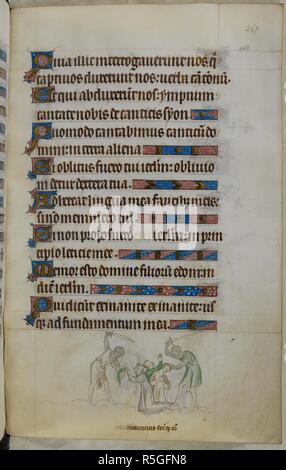 Quia illic interrogaverunt nos: q
captivos duxerunt nos: verba
Et qui abduxerunt nos: ympnum
cantate nobis de canticis syon
Quomodo cantabimus canticum do
mini: in terra aliena
Si oblitus fuero tui ierlm: oblivio
ni detur dextera mea
lingua mea faucibus meis:
si non meminero tui
Si non proposuero ierlm: in prin
cipio leticie mee
Memor esto domine filiorum edom: in
die ierlm
Qui dicunt exinanite exinanite: us
q ad fundamentum in ea
267